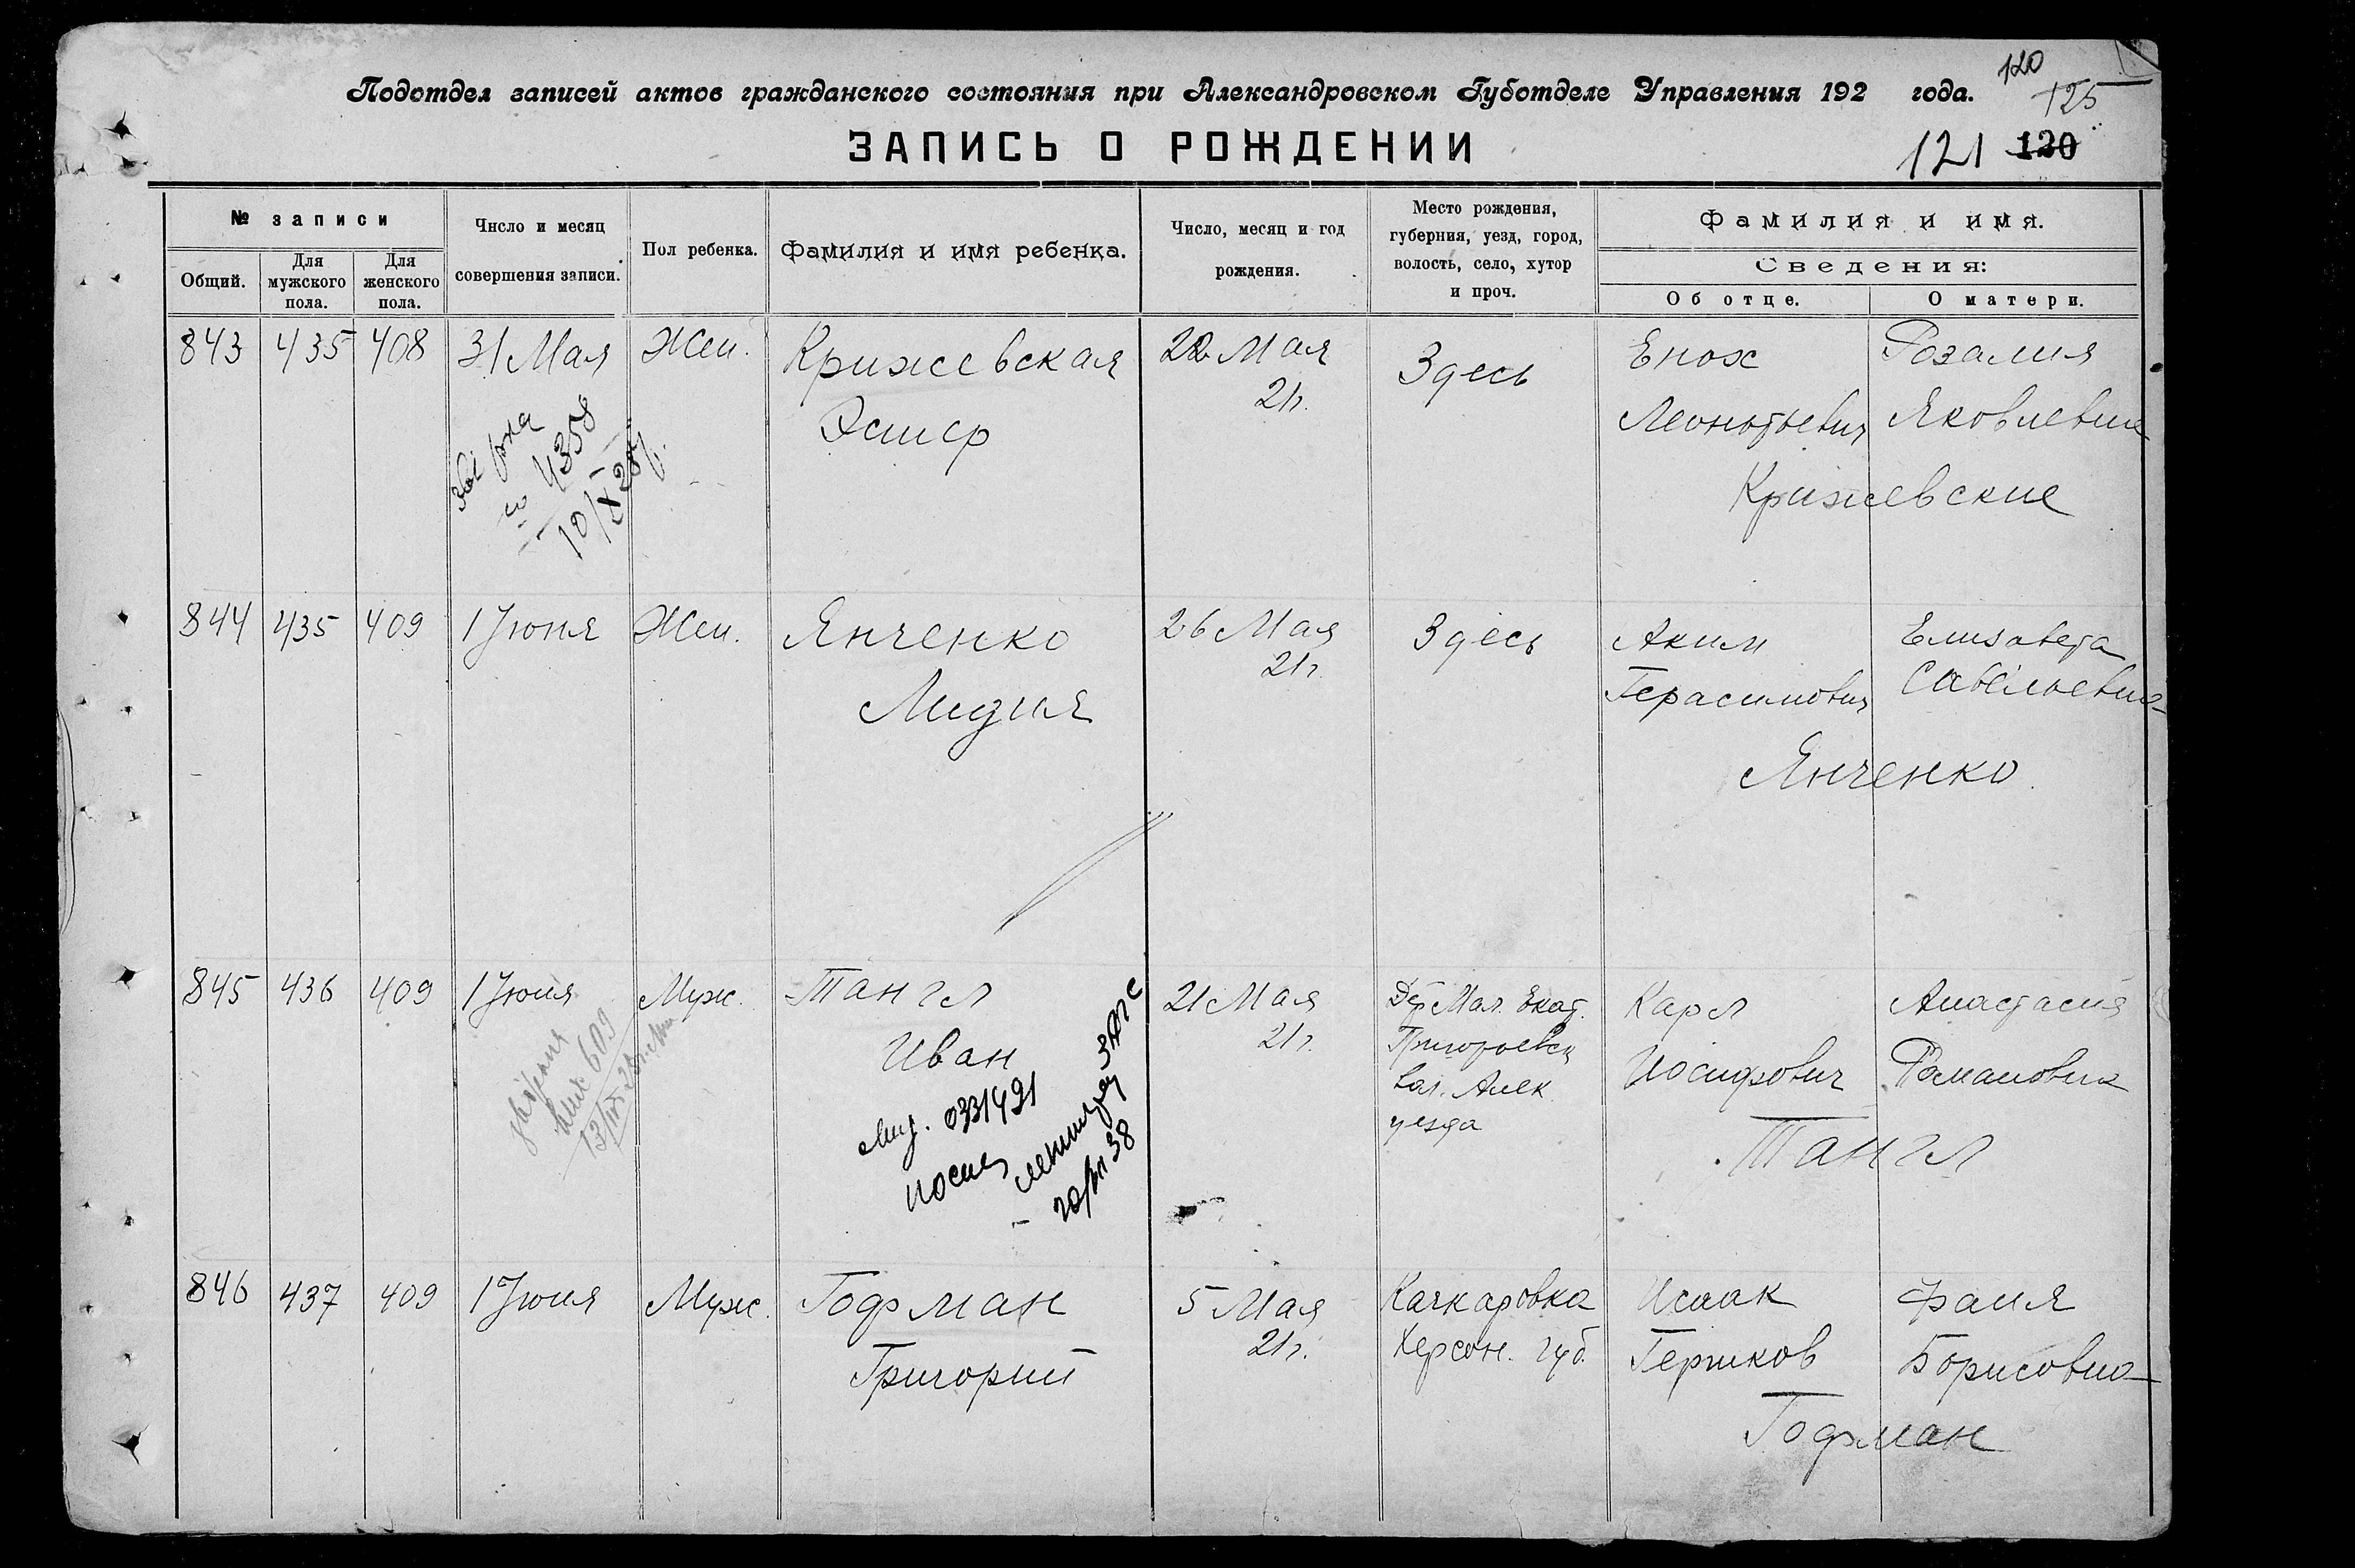 120
125
Подотдел записей актов гражданского состояния при Александровском Губотделе Управления 192 года.
ЗАПИСЬ О РОЖДЕНИИ
121 120
№ записи
Общий.
Для мужского пола.
Для женского пола.
Число и месяц совершения записи.
Пол ребенка.
Фамилия и имя ребенка.
Число, месяц и год рождения.
Место рождения, губерния, уезд, город, волость, село, хутор и проч.
Фамилия и имя.
Сведения:
Об отце.
О матери.
843 435 408 31 Мая Жен. Крижевская 22 Мая Здесь Енох Розалия
Эсшер 21г. Леонтьевич Яковлевна
Крижевские
4358
10/X 28г.
844 435 409 1 Июня Жен. Янченко 26 Мая Здесь Аким Елизавета
Лидия 21г. Герасимович Савельевна
Янченко
845 436 409 1 Июня Муж. Тангл 21 Мая Дер Мал. Екат. Карл Анастасия
Иван 21г. Григорьевск Иосифович Романовна
вол. Алек
уезда
Тангл
609
0331491
ЗАГС
846 437 409 1 Июня Муж. Гофман 5 Мая Качкаровка Исаак Фаня
Григорий 21г. Херсон. губ. Гершков Борисовна
Гофман